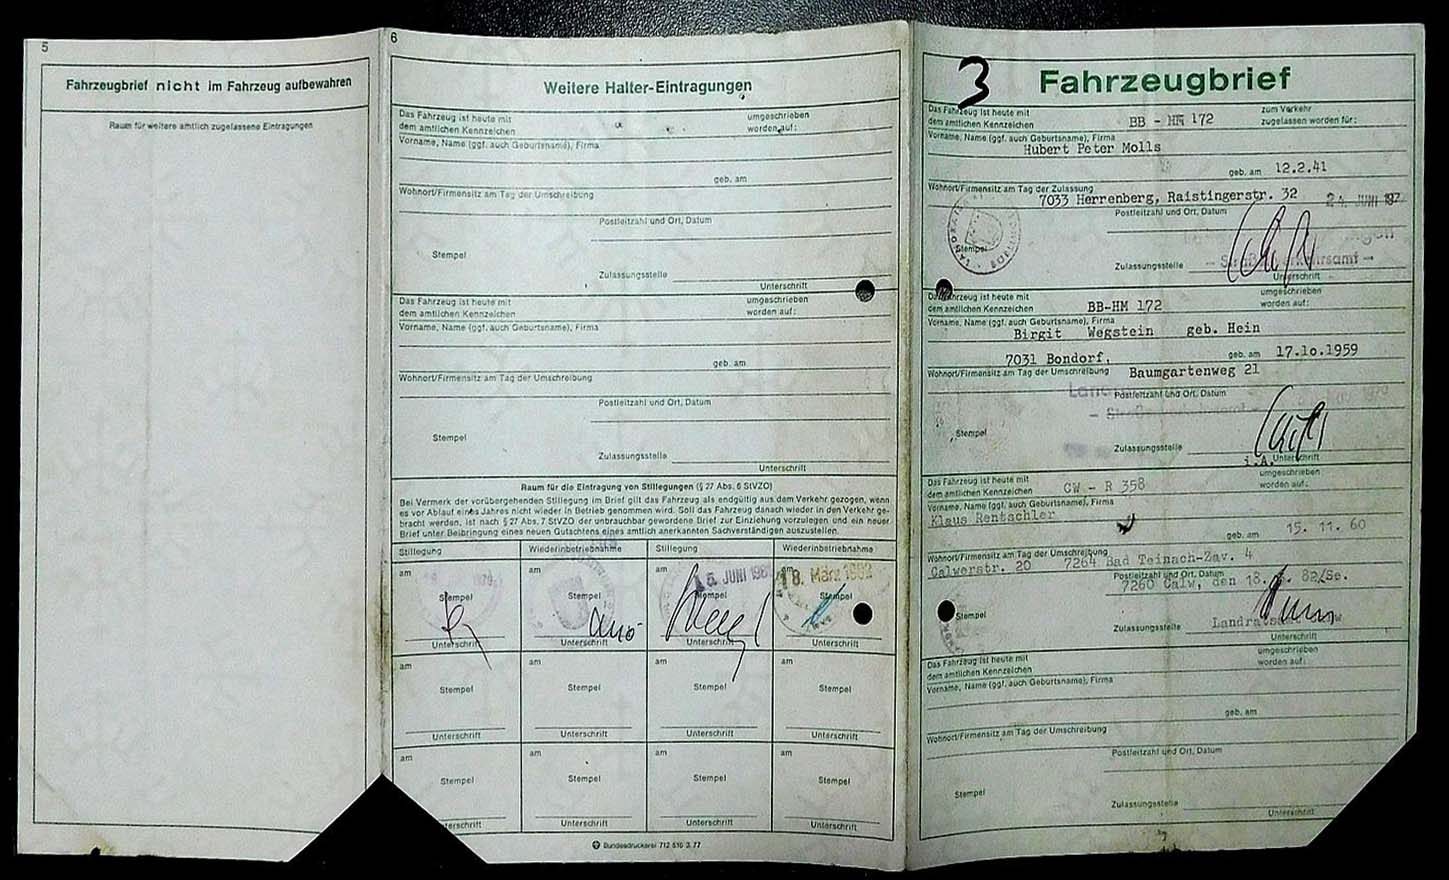 5
Fahrzeugbrief nicht im Fahrzeug aufbewahren
Raum für weitere amtlich zugelassene Eintragungen
6
Weitere Halter-Eintragungen
Das Fahrzeug ist heute mit
dem amtlichen Kennzeichen
umgeschrieben
worden auf:
Vorname, Name (ggf. auch Geburtsname), Firma
geb. am
Wohnort/Firmensitz am Tag der Umschreibung
Postleitzahl und Ort, Datum
Stempel
Zulassungsstelle
Unterschrift
Das Fahrzeug ist heute mit
dem amtlichen Kennzeichen
umgeschrieben
worden auf:
Vorname, Name (ggf. auch Geburtsname), Firma
geb. am
Wohnort/Firmensitz am Tag der Umschreibung
Postleitzahl und Ort, Datum
Stempel
Zulassungsstelle
Unterschrift
Raum für die Eintragung von Stillegungen (§ 27 Abs. 6 StVZO)
Bei Vermerk der vorübergehenden Stillegung im Brief gilt das Fahrzeug als endgültig aus dem Verkehr gezogen, wenn
es vor Ablauf eines Jahres nicht wieder in Betrieb genommen wird. Soll das Fahrzeug danach wieder in den Verkehr ge-
bracht werden, ist nach § 27 Abs. 7 StVZO der unbrauchbar gewordene Brief zur Einziehung vorzulegen und ein neuer
Brief unter Beibringung eines neuen Gutachtens eines amtlich anerkannten Sachverständigen auszustellen.
Stillegung Wiederinbetriebnahme Stillegung Wiederinbetriebnahme
am am am am
1979 5. JUNI 18. März 1982
Stempel Stempel Stempel Stempel
Unterschrift Unterschrift Unterschrift Unterschrift
am am am am
Stempel Stempel Stempel Stempel
Unterschrift Unterschrift Unterschrift Unterschrift
am am am am
Stempel Stempel Stempel Stempel
Unterschrift Unterschrift Unterschrift Unterschrift
Bundesdruckerei 712 516 3.77
3 Fahrzeugbrief
Das Fahrzeug ist heute mit
dem amtlichen Kennzeichen BB - HM 172
zum Verkehr
zugelassen worden für:
Vorname, Name (ggf. auch Geburtsname), Firma
Hubert Peter Molls
geb. am 12.2.41
Wohnort/Firmensitz am Tag der Zulassung
7033 Herrenberg, Raistingerstr. 32
JUNI
Postleitzahl und Ort, Datum
Stempel
Zulassungsstelle
Unterschrift
Das Fahrzeug ist heute mit
dem amtlichen Kennzeichen BB-HM 172
umgeschrieben
worden auf:
Vorname, Name (ggf. auch Geburtsname), Firma
Birgit Wegstein geb. Hein
7031 Bondorf, geb. am 17.10.1959
Wohnort/Firmensitz am Tag der Umschreibung Baumgartenweg 21
Postleitzahl und Ort, Datum
Stempel
Zulassungsstelle
i.A. Unterschrift
Das Fahrzeug ist heute mit
dem amtlichen Kennzeichen CW - R 358
umgeschrieben
worden auf:
Vorname, Name (ggf. auch Geburtsname), Firma
Klaus Rentschler
geb. am 15. 11. 60
Wohnort/Firmensitz am Tag der Umschreibung
Calwerstr. 20 7264 Bad Teinach-Zav. 4
Postleitzahl und Ort, Datum
7260 Calw, den 18. 82/Se.
Stempel
Zulassungsstelle
Unterschrift
Das Fahrzeug ist heute mit
dem amtlichen Kennzeichen
umgeschrieben
worden auf:
Vorname, Name (ggf. auch Geburtsname), Firma
geb. am
Wohnort/Firmensitz am Tag der Umschreibung
Postleitzahl und Ort, Datum
Stempel
Zulassungsstelle
Unterschrift